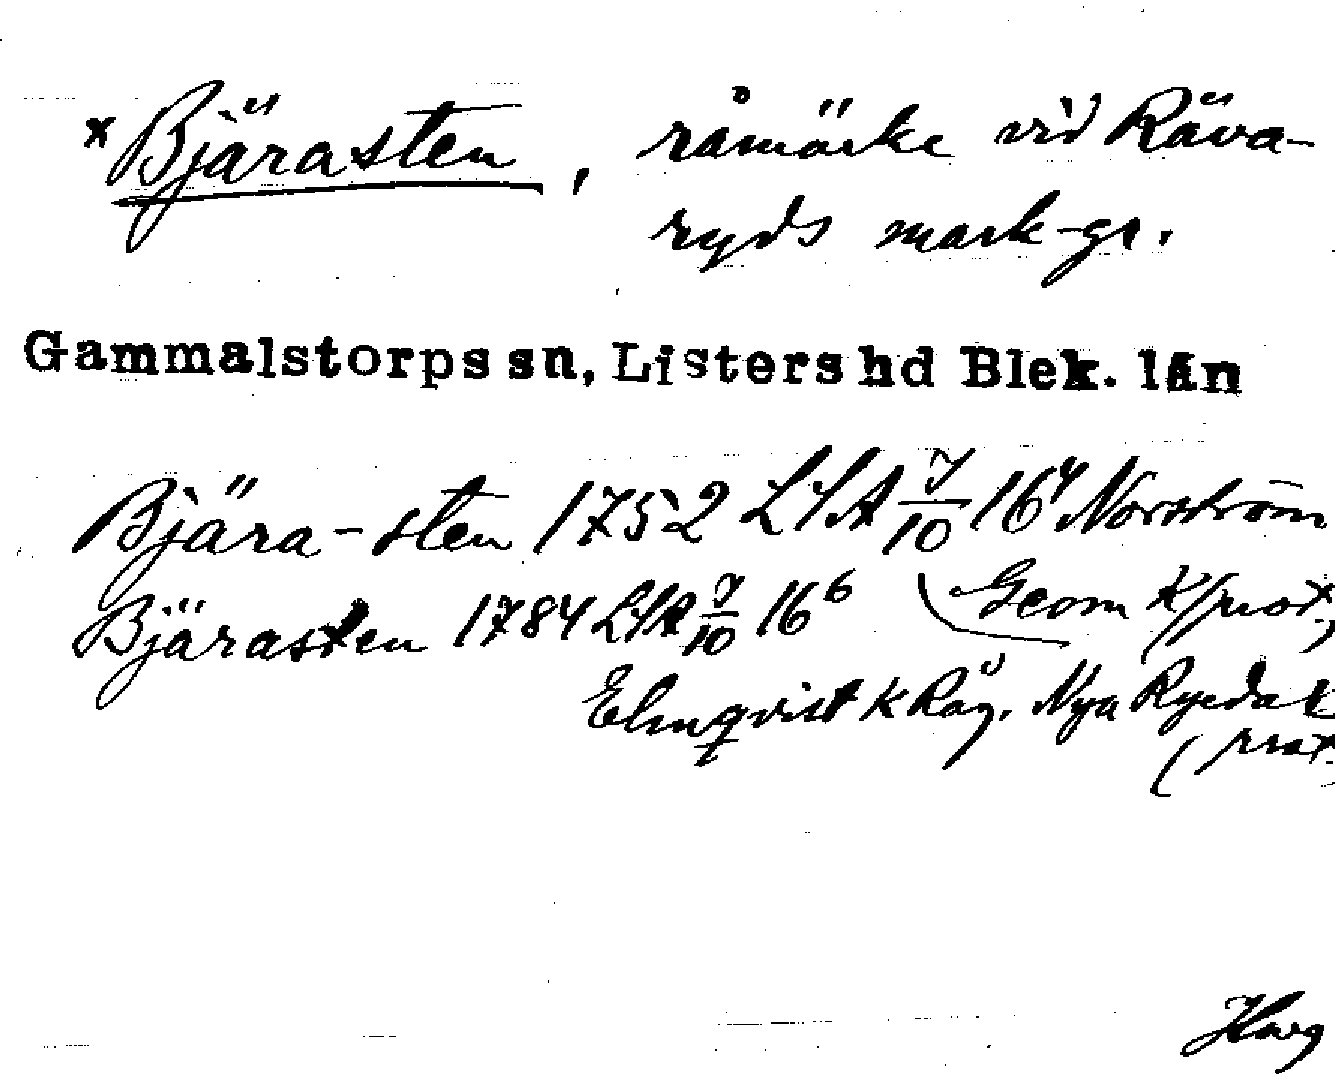 *Bjärasten, råmärke vid Räva-
ryds mark-gr.
Gammalstorps sn, Listers hd Blek. län
Bjära-sten 1752 LSA 7/10 16⁴ Norström
(Geom K/prot.,
Bjärasten 1784 LSA 7/10 16⁶
Elmqvist K Råg. Nya Ryedal
(prot.